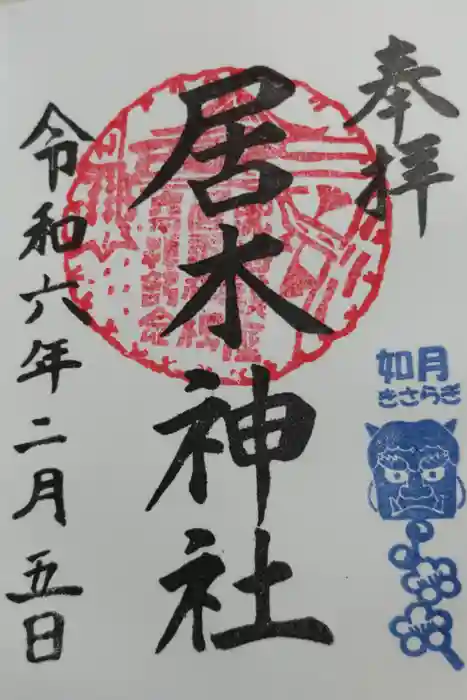 奉拝
如月
きさらぎ
居木神社
令和六年二月五日